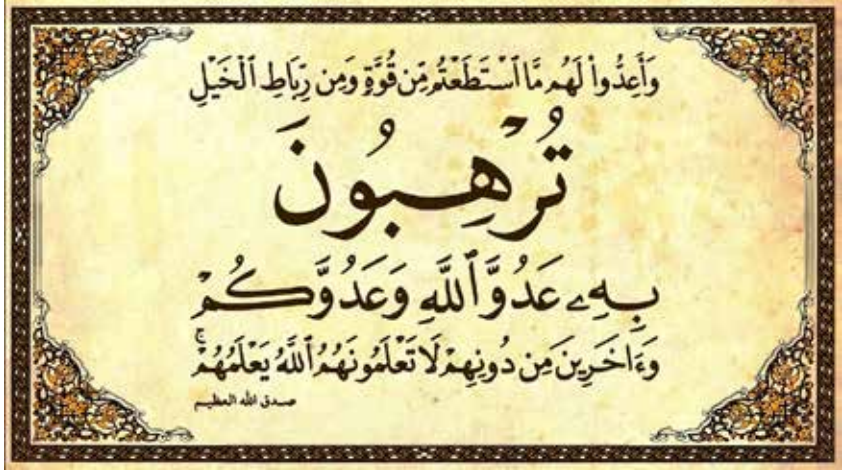 وَأَعِدُّواْ لَهُم مَّا ٱسْتَطَعْتُم مِّن قُوَّةٍ وَمِن رِّبَاطِ ٱلْخَيْلِ
تُرْهِبُونَ
بِهِۦ عَدُوَّ ٱللَّهِ وَعَدُوَّكُمْ
وَءَاخَرِينَ مِن دُونِهِمْ لَا تَعْلَمُونَهُمُ ٱللَّهُ يَعْلَمُهُمْ ۚ
صدق الله العظيم